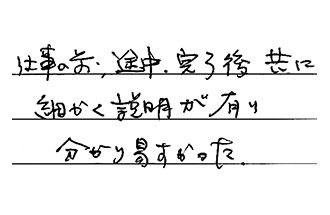 仕事の前,途中.完了後 共に
細かく説明が有り
分かり易すかった.